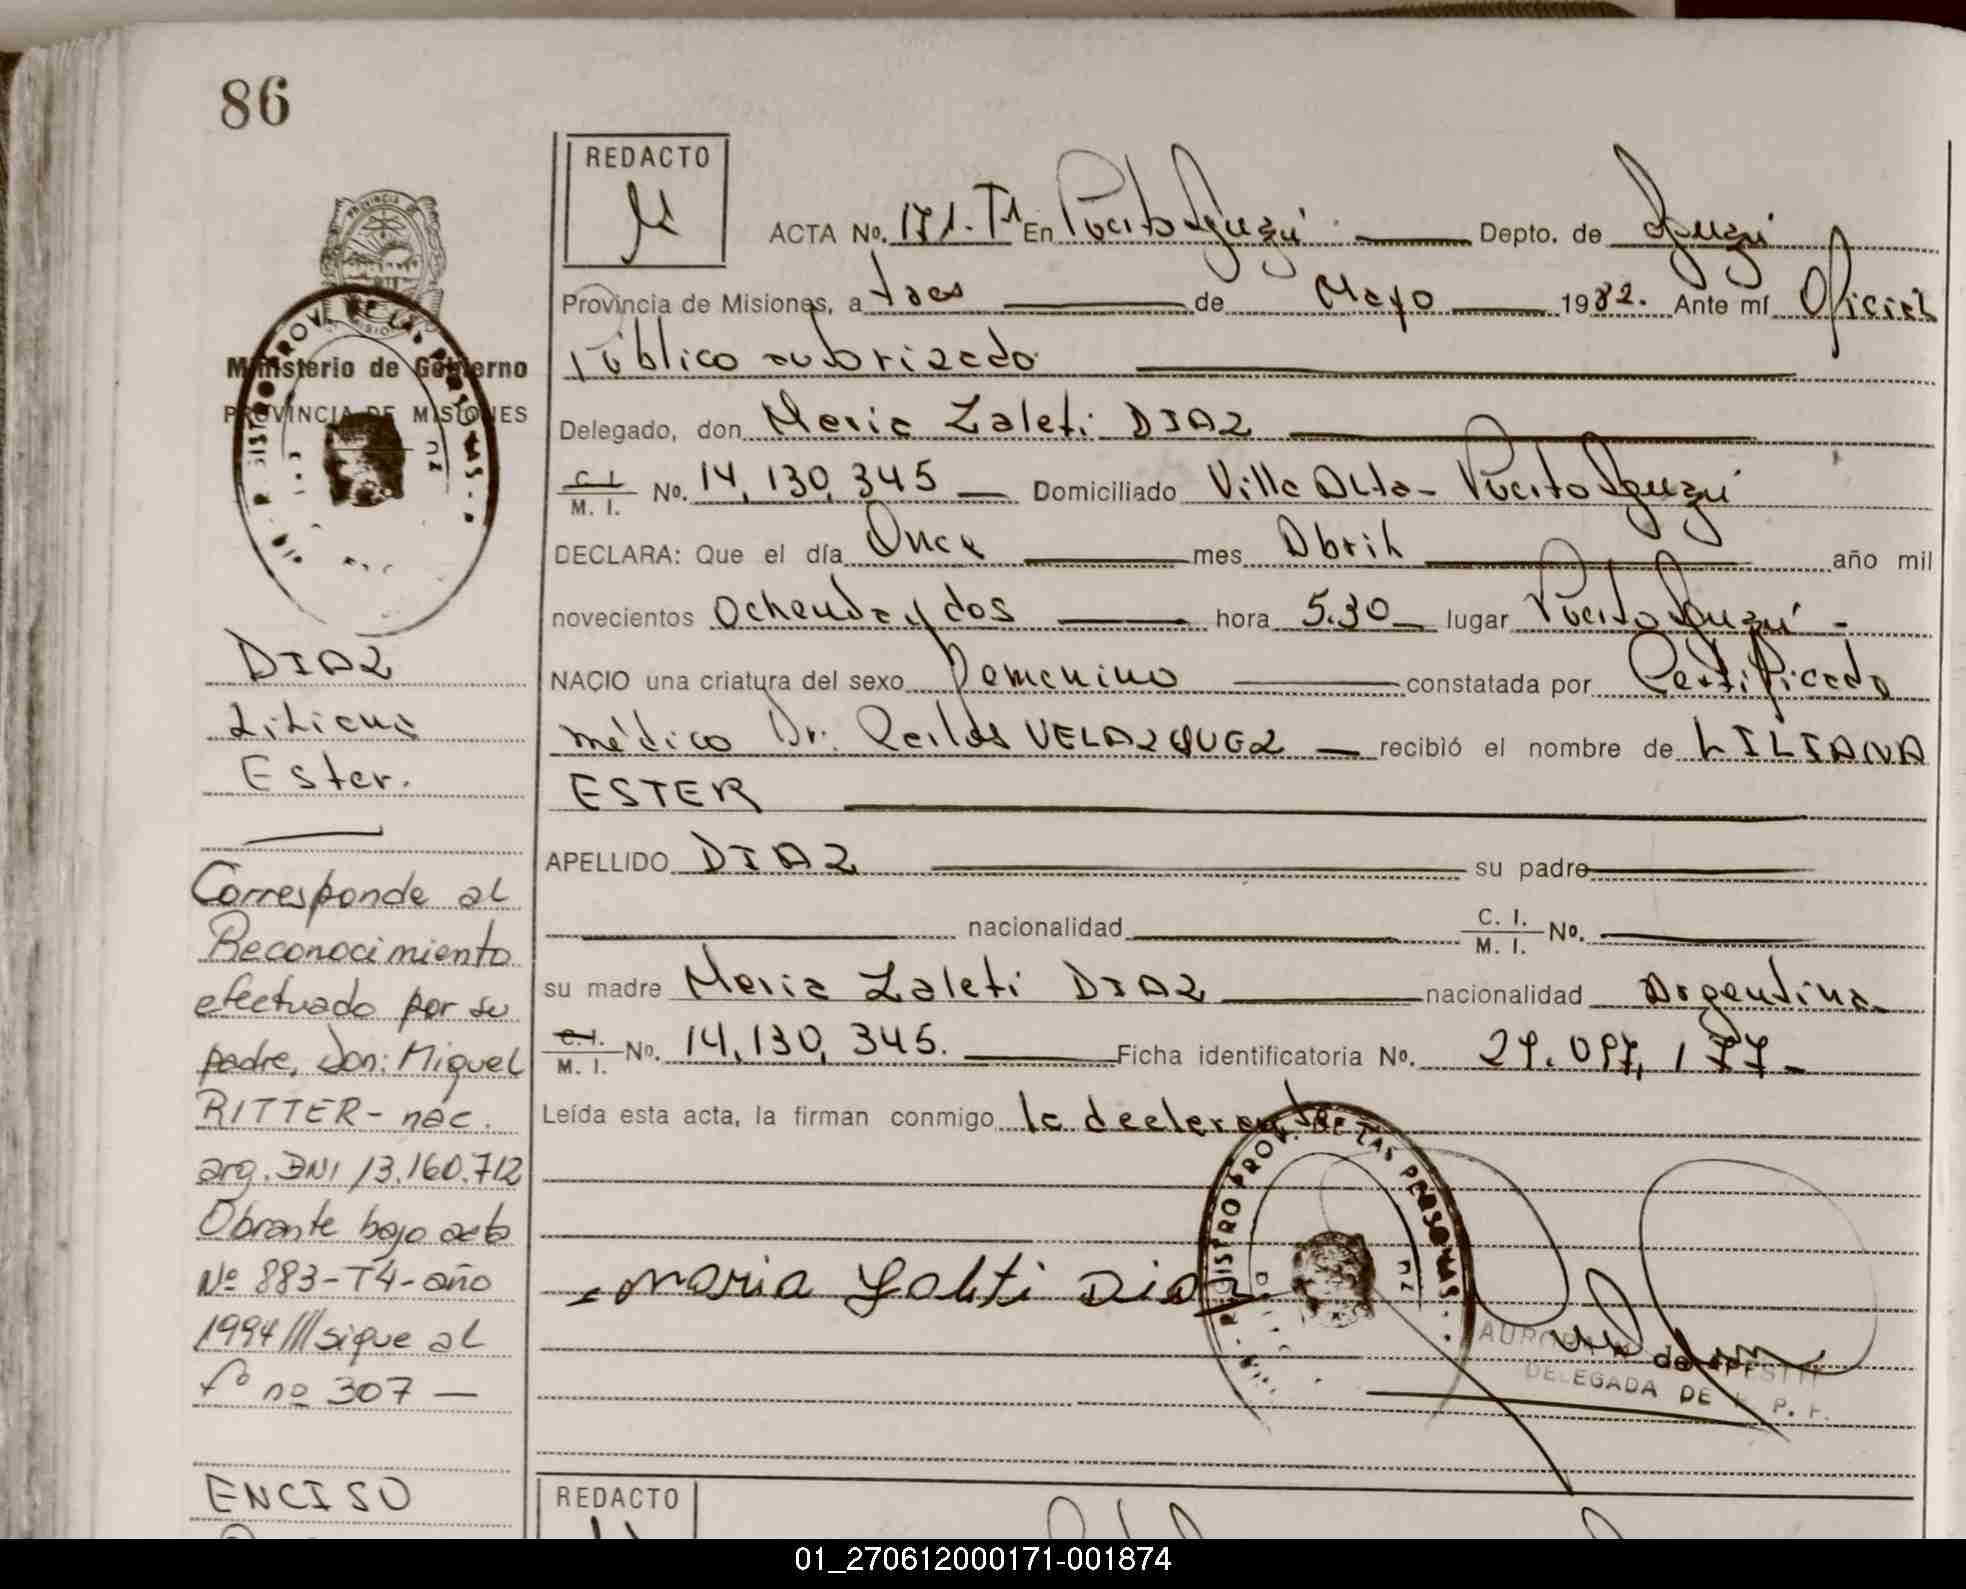 86
REDACTO
ACTA No. 171. T1 En Puerto Iguazú Depto. de Iguazú
Provincia de Misiones, a tres de Mayo 1982. Ante mí Oficial
Público autorizado
Delegado, don Maria Zaleti DIAZ
C. I. M. I. No. 14,130,345 Domiciliado Villa Alta - Puerto Iguazú
DECLARA: Que el día Once mes Abril año mil
novecientos Ochenta y dos hora 5.30 lugar Puerto Iguazú -
NACIO una criatura del sexo Femenino constatada por Certificado
médico Dr. Carlos VELAZQUEZ recibió el nombre de LILIANA
ESTER
APELLIDO DIAZ su padre
nacionalidad C. I. M. I. No.
su madre Maria Zaleti DIAZ nacionalidad Argentina
C. I. M. I. No. 14,130,345. Ficha identificatoria No. 29.097,177-
Leída esta acta, la firman conmigo la declarante
maria Zaleti Diaz
DELEGADA DE
PROVINCIA DE
Ministerio de Gobierno
PROVINCIA DE MISIONES
DIAZ
Liliana
Ester.
Corresponde al
Reconocimiento
efectuado por su
padre, Don: Miguel
RITTER - nac.
arg. DNI 13.160.712
Obrante bajo acta
Nº 883-T4-año
1994///sigue al
fº nº 307 —
ENCISO
REDACTO
01_270612000171-001874